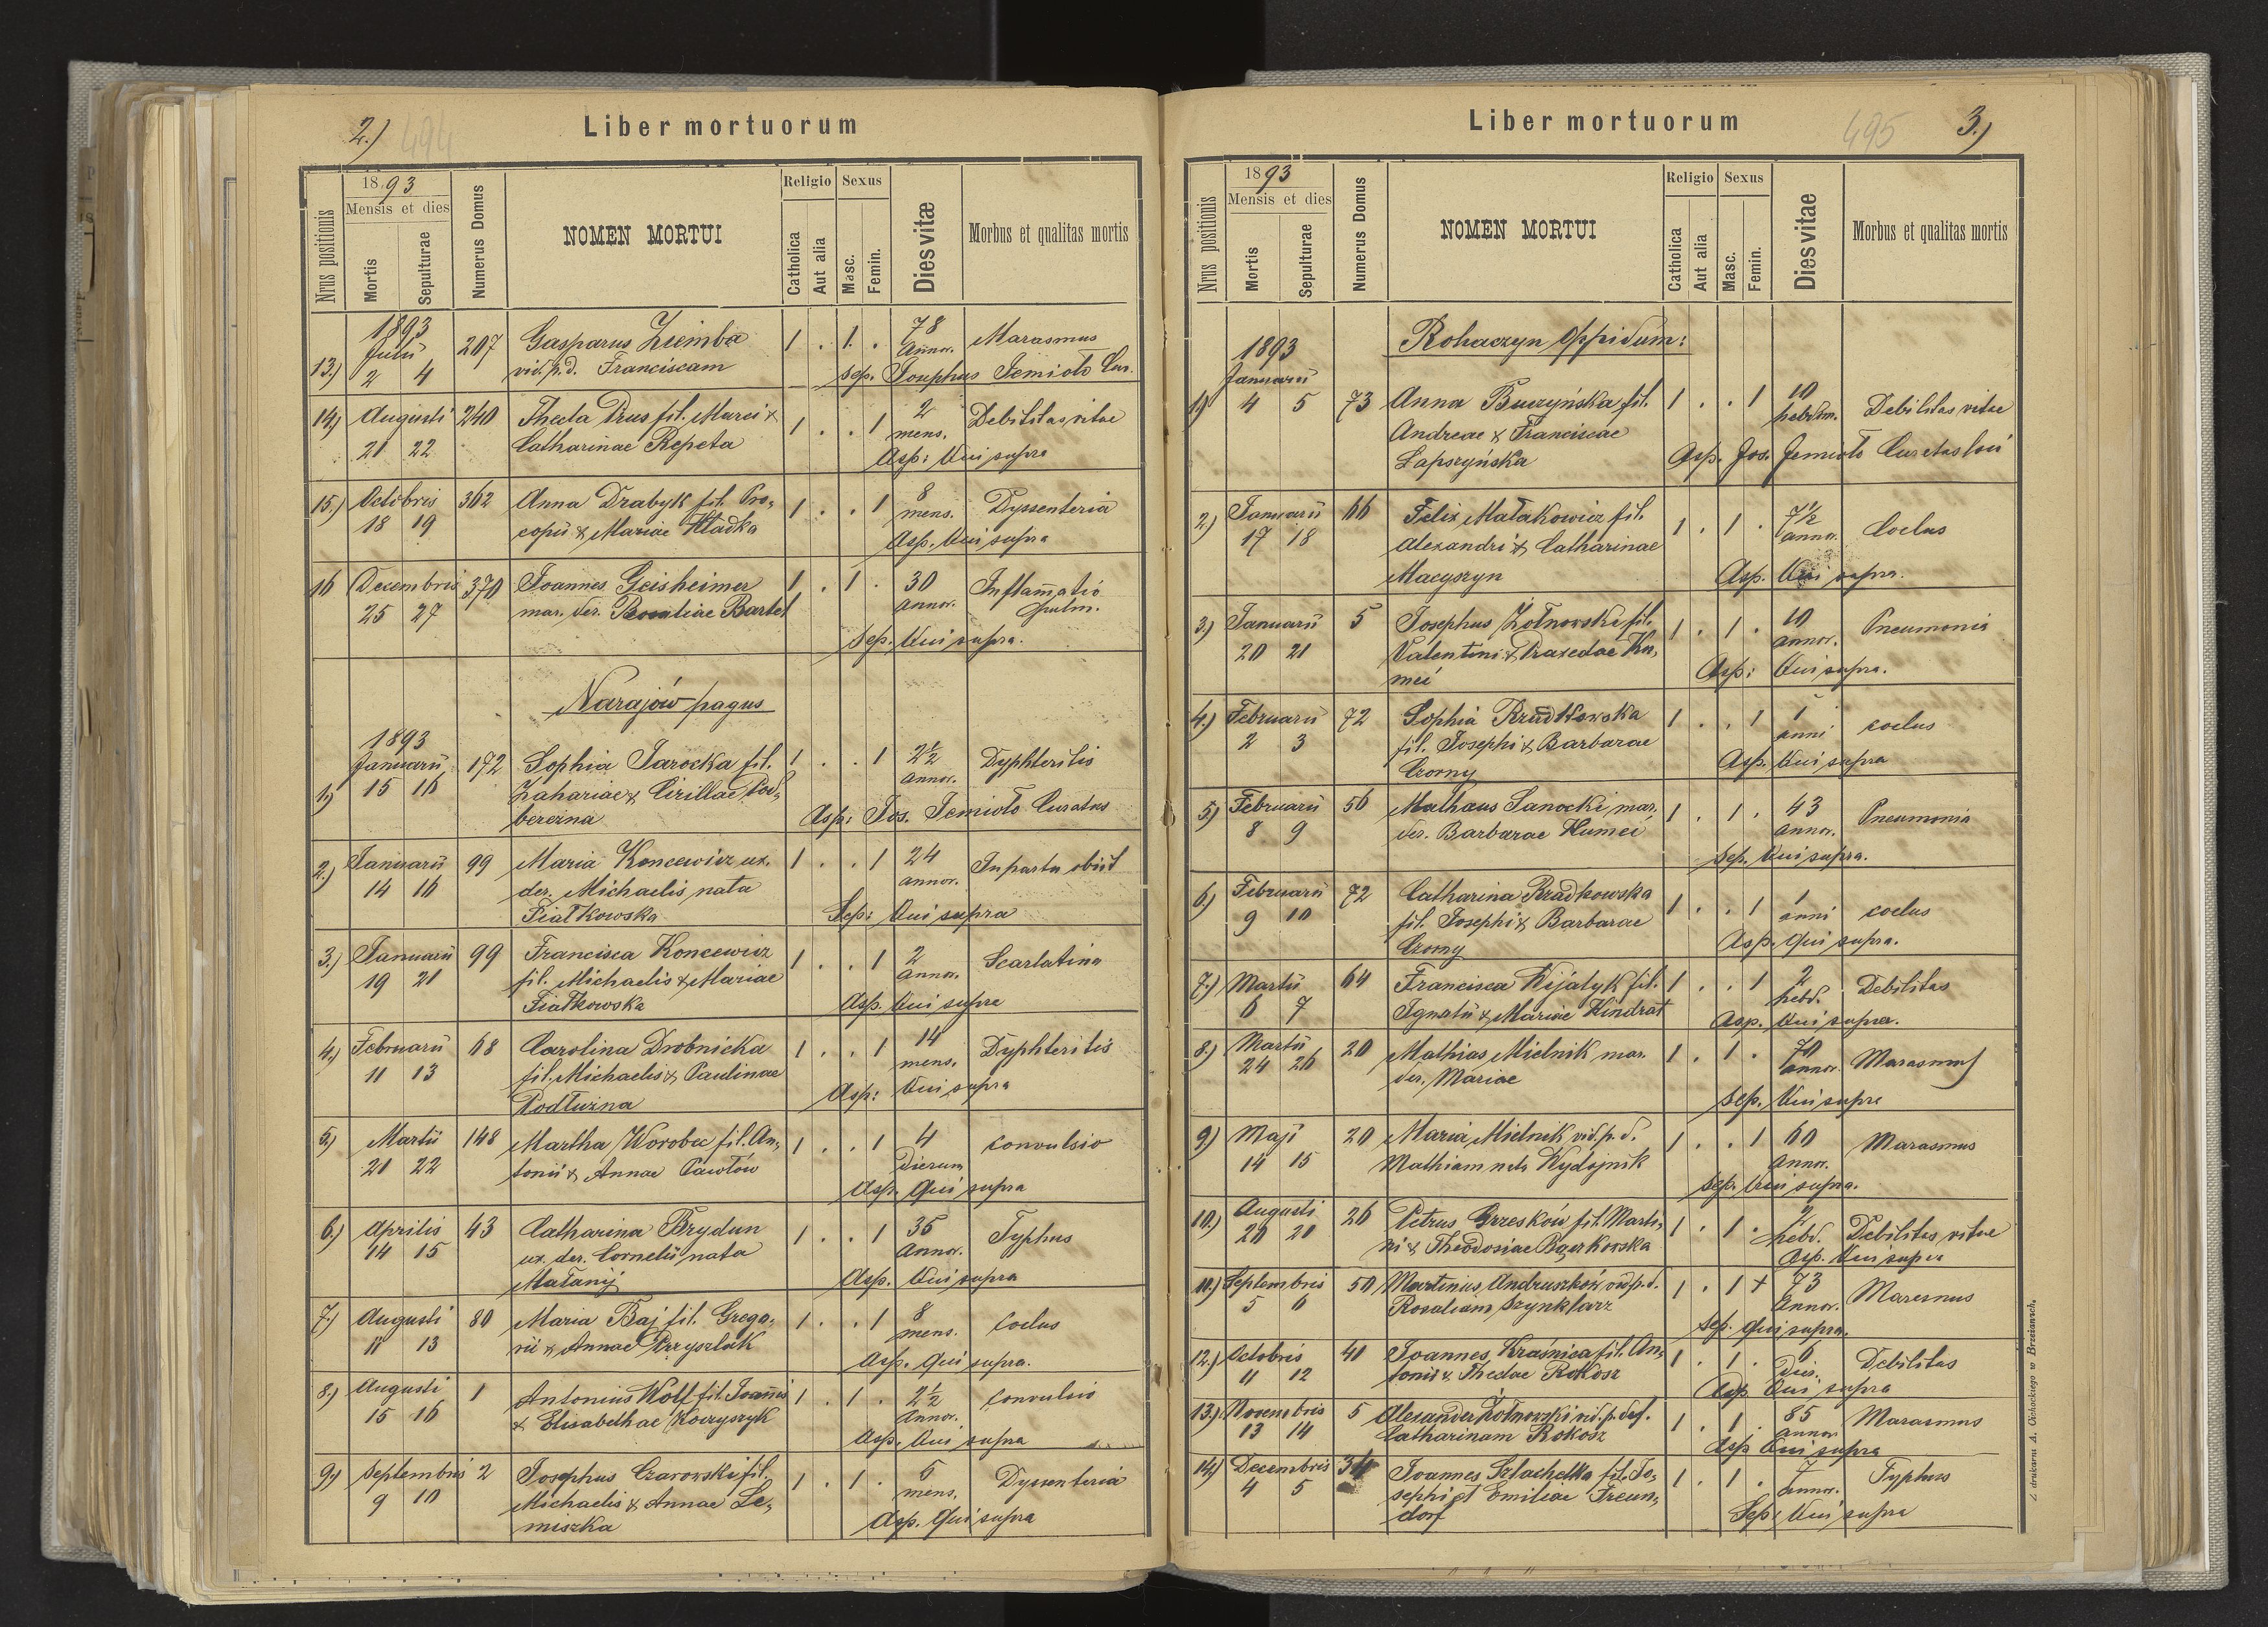 2.) 494
Liber mortuorum
Nrus positionis
1893
Mensis et dies
Mortis
Sepulturae
Numerus Domus
NOMEN MORTUI
Religio
Catholica
Aut alia
Sexus
Masc.
Femin.
Dies vitæ
Morbus et qualitas mortis
1893
13.) Julii 207 Gasparus Ziemba 1 . 1 . 78 annor. Marasmus
2 4 vid. p. d. Franciscam sep. Josephus Jemioło Cur.
14.) Augusti 240 Thecla Prus fil. Marci & 1 . . 1 2 mens. Debilitas vitae
21 22 Catharinae Repeta Asp: Qui supra
15.) Octobris 362 Anna Drabyk fil. Pro- 1 . . 1 8 mens. Dyssenteria
18 19 copii & Mariae Hładka Asp. Qui supra
16 Decembris 370 Joannes Geisheimer 1 . 1 . 30 annor. Inflamatio
25 27 mar. der. Rosaliae Bartel pulm.
Sep. Qui supra.
Narajów pagus
1893
1.) Januarii 172 Sophia Jarocka fil. 1 . . 1 2½ annor. Dyphteritis
15 16 Zahariae & Cirillae Pod-
berezna Asp: Jos. Jemioło Curatus
2.) Januarii 99 Maria Koncewicz ux. 1 . . 1 24 annor. In partu obiit
14 16 der. Michaelis nata
Fiałkowska Sep: Qui supra
3.) Januarii 99 Francisca Koncewicz 1 . . 1 2 annor. Scarlatina
19 21 fil. Michaelis & Mariae
Fiałkowska Asp. Qui supra
4.) Februarii 68 Carolina Drobnicka 1 . . 1 14 mens. Dyphteritis
11 13 fil. Michaelis & Paulinae
Podłuzna Asp: Qui supra
5.) Martii 148 Martha Worobec fil. An- 1 . . 1 4 Dierum convulsio
21 22 tonii & Annae Pawłów
Asp. Qui supra
6.) Aprilis 43 Catharina Brydun 1 . . 1 35 Annor. Typhus
14 15 ux. der. Cornelii nata
Małanij Asp. Qui supra
7.) Augusti 80 Maria Baj fil. Grego- 1 . . 1 8 mens. Coclus
11 13 rii & Annae Przyszlak
Asp. Qui supra.
8.) Augusti 1 Antonius Wolf fil. Joannis 1 . 1 . 2½ Annor. Convulsio
15 16 & Elisabethae Koczyszyk
Asp. Qui supra
9.) Septembris 2 Josephus Czarowski fil. 1 . 1 . 5 mens. Dyssenteria
9 10 Michaelis & Annae Le-
miszka Asp. Qui supra
495 3.)
Liber mortuorum
Nrus positionis
1893
Mensis et dies
Mortis
Sepulturae
Numerus Domus
NOMEN MORTUI
Religio
Catholica
Aut alia
Sexus
Masc.
Femin.
Dies vitae
Morbus et qualitas mortis
Rohaczyn Oppidum:
1893
Januarii
1) 4 5 73 Anna Buczyńska fil. 1 . . 1 10 hebdom. Debilitas vitae
Andreae & Franciscae
Lapszyńska Asp. Jos. Jemioło Curatus loci
2.) Januarii 66 Felix Małakowicz fil. 1 . 1 . 7½ annor. Coclus
17 18 Alexandri & Catharinae
Macyszyn Asp. Qui supra.
3.) Januarii 5 Josephus Żółnowski fil. 1 . 1 . 10 annor. Pneumonia
20 21 Valentini & Praxedae Hu-
meń Asp: Qui supra.
4.) Februarii 72 Sophia Rzadkowska 1 . . 1 1 anni coclus
2 3 fil. Josephi & Barbarae
Czorny Asp. Qui supra
5.) Februarii 56 Mathaus Sanocki mar. 1 . 1 . 43 annor. Pneumonia
8 9 der. Barbarae Humeń
Sep. Qui supra.
6.) Februarii 72 Catharina Rzadkowska 1 . . 1 1 anni coclus
9 10 fil. Josephi & Barbarae
Czorny Asp. Qui supra.
7.) Martii 64 Francisca Kijałyk fil. 1 . . 1 2 hebd. Debilitas
6 7 Ignatii & Mariae Kindrat
Asp. Qui supra.
8.) Martii 20 Mathias Mielnik mar. 1 . 1 . 70 annor. Marasmus
24 26 der. Mariae
Sep. Qui supra
9.) Maji 20 Maria Mielnik vid. p. d. 1 . . 1 60 Annor. Marasmus
14 15 Mathiam nata Wydojnik
Sep. Qui supra.
10.) Augusti 26 Petrus Grzesków fil. Marti- 1 . 1 . 2 hebd. Debilitas vitae
20 21 ni & Theodosiae Bączkowska
Asp. Qui supra
11.) Septembris 50 Martinus Andruszków vid. p. d. 1 . 1 + 73 Annor. Marasmus
5 6 Rosaliam Szynklarz
Sep. Qui supra.
12.) Octobris 41 Joannes Kraśnica fil. An- 1 . 1 . 6 Dies. Debilitas
11 12 tonii & Theclae Rokosz
Asp. Qui supra
13.) Novembris 5 Alexander Żółnowski vid. p. def. 1 . 1 . 85 annor Marasmus
13 14 Catharinam Rokosz
Asp Qui supra
14.) Decembris 34 Joannes Szlachetka fil. Jo- 1 . 1 . 7 annor. Typhus
4 5 sephi et Emiliae Freun-
dorf Sep: Qui supra
Z drukarni A. Cichockiego w Brzeżanach.